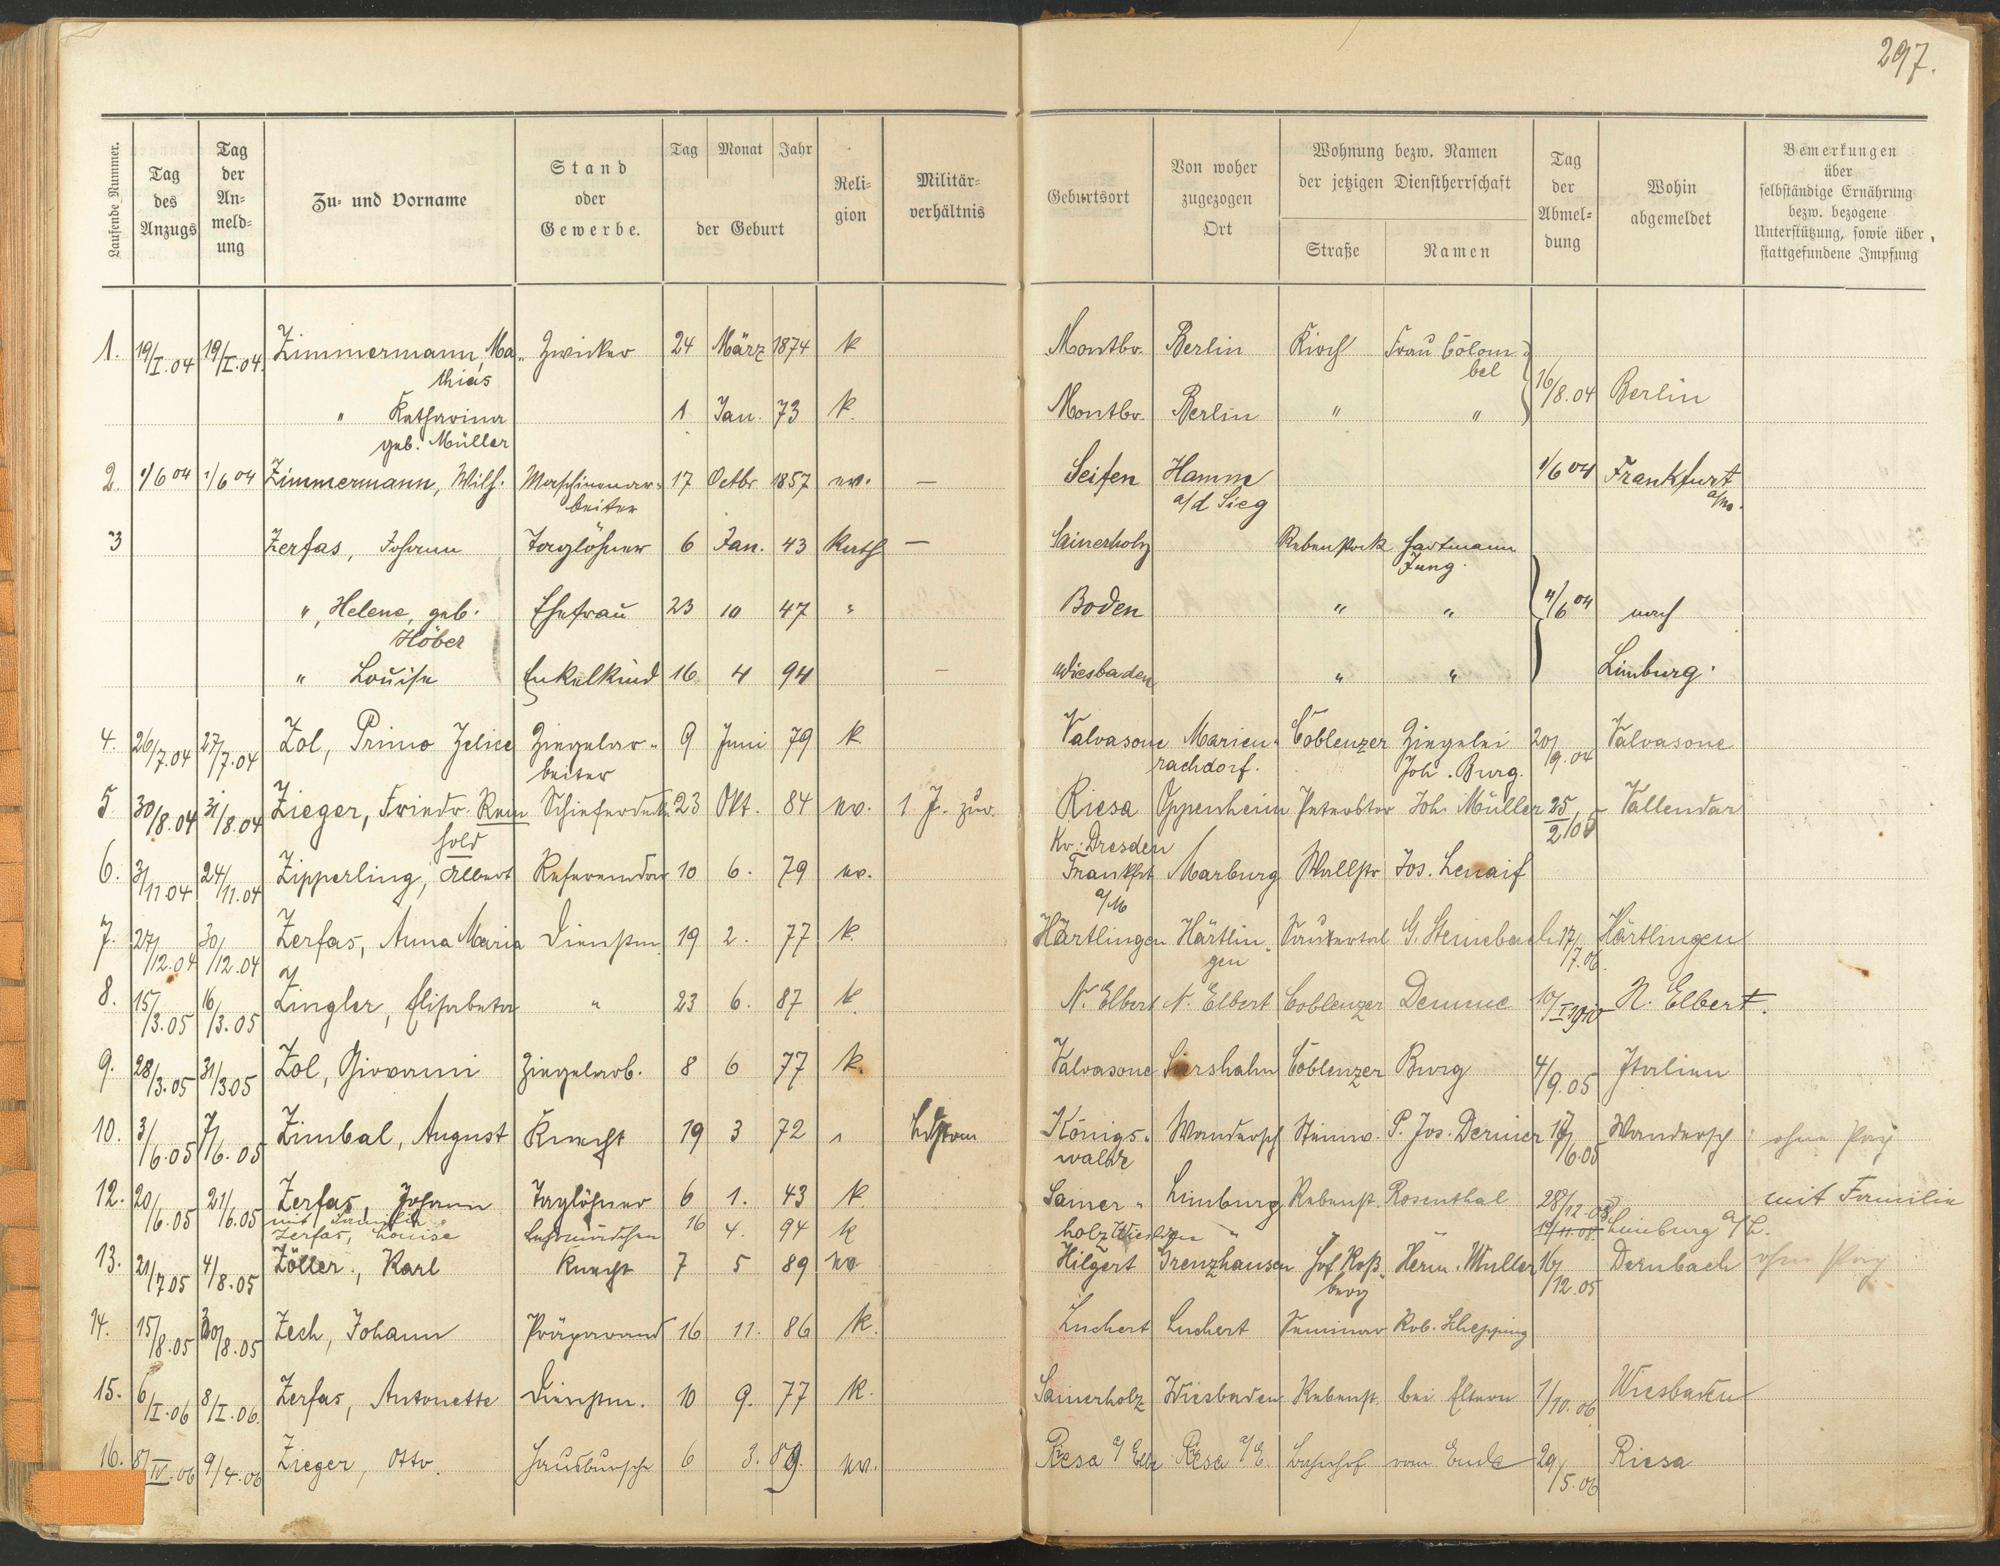 297.
Laufende Nummer.
Tag des Anzugs
Tag der An-meld-ung
Zu- und Vorname
Stand oder Gewerbe.
Tag Monat Jahr
der Geburt
Reli-gion
Militär-verhältnis
Geburtsort
Von woher zugezogen Ort
Wohnung bezw. Namen
der jetzigen Dienstherrschaft
Straße Namen
Tag der Abmel-dung
Wohin abgemeldet
Bemerkungen
über
selbständige Ernährung
bezw. bezogene
Unterstützung, sowie über
stattgefundene Impfung
1. 19/I.04 19/I.04. Zimmermann, Ma- Zwicker 24 März 1874 k Montbr. Berlin Kirch Frau Colom-
thias bel 16/8.04 Berlin
" Katharina 1 Jan. 73 k. Montbr. Berlin " "
geb. Müller
2. 1/6 04 1/6 04 Zimmermann, Wilh. Maschinenar- 17 Octbr 1857 ev. — Seifen Hamm 1/6 04 Frankfurt
beiter a/d Sieg a/M.
3 Zerfas, Johann Taglöhner 6 Jan. 43 kath — Sainerholz Rebenstock Hartmann
Jung.
", Helene, geb. Ehefrau 23 10 47 " Boden " " 4/6 04 nach
Höber
" Louise Enkelkind 16 4 94 — Wiesbaden " " Limburg.
4. 26/7.04 27/7.04 Zol, Primo Felice Ziegelar- 9 Juni 79 k. Valvasone Marien- Coblenzer Ziegelei 20/9.04 Valvasone
beiter rachdorf. Joh. Burg.
5. 30/8.04 31/8.04 Zieger, Friedr. Rein Schieferdeck. 23 Okt. 84 ev. 1 J. zur. Riesa Oppenheim Peterstor Joh. Müller 25/2/05 Vallendar
hold Kr. Dresden
6. 3/11.04 24/11.04 Zipperling, Albert Referendar 10 6. 79 ev. Frankfrt Marburg Wallstr Jos.
a/M
7. 27/12.04 30/12.04 Zerfas, Anna Maria Dienstm. 19 2. 77 k. Härtlingen Härtlin- Sauertal G. Steinebach 17/7.06. Härtlingen
gen
8. 15/3.05 16/3.05 Zingler, Elisabeta " 23 6. 87 k. N. Elbert N. Elbert Coblenzer 10/I 1910 N. Elbert.
9. 28/3.05 31/3.05 Zol, Giovanni Ziegelarb. 8 6 77 k. Valvasone Siershahn Coblenzer Burg 4/9.05 Italien
10. 3/6.05 7/6.05 Zimbal, August Knecht 19 3 72 " Ldstrm Königs- Wandersch Steinw. P. Jos. 17/6.05 Wandersch ohne
walde
12. 20/6.05 21/6.05 Zerfas, Johann Taglöhner 6 1. 43 k. Sainer- Limburg Rebenst. Rosenthal 28/12.08 mit Familie
mit Familie
Zerfas, Louise 16 4. 94 k holz Wiesbaden " 12/11.08. Limburg a/L.
13. 21/7.05 4/8.05 Zöller, Karl Knecht 7 5 89 ev Hilgert Grenzhausen Hof Roß- Herm. Müller 16/12.05 Dernbach ohne
berg
14. 15/8.05 20/8.05 Zech, Johann Präparand 16 11. 86 k. Luchert Luchert Seminar Rob.
15. 6/I.06 8/I.06. Zerfas, Antonette Dienstm. 10 9. 77 k. Sainerholz Wiesbaden Rebenst. bei Eltern 1/10.06 Wiesbaden
16. 8/IV.06 9/4.06 Zieger, Otto. Hausbursche 6 3. 89. ev. Riesa a/Elbe Riesa a/E. Bahnhof vom Ende 29/5.06 Riesa